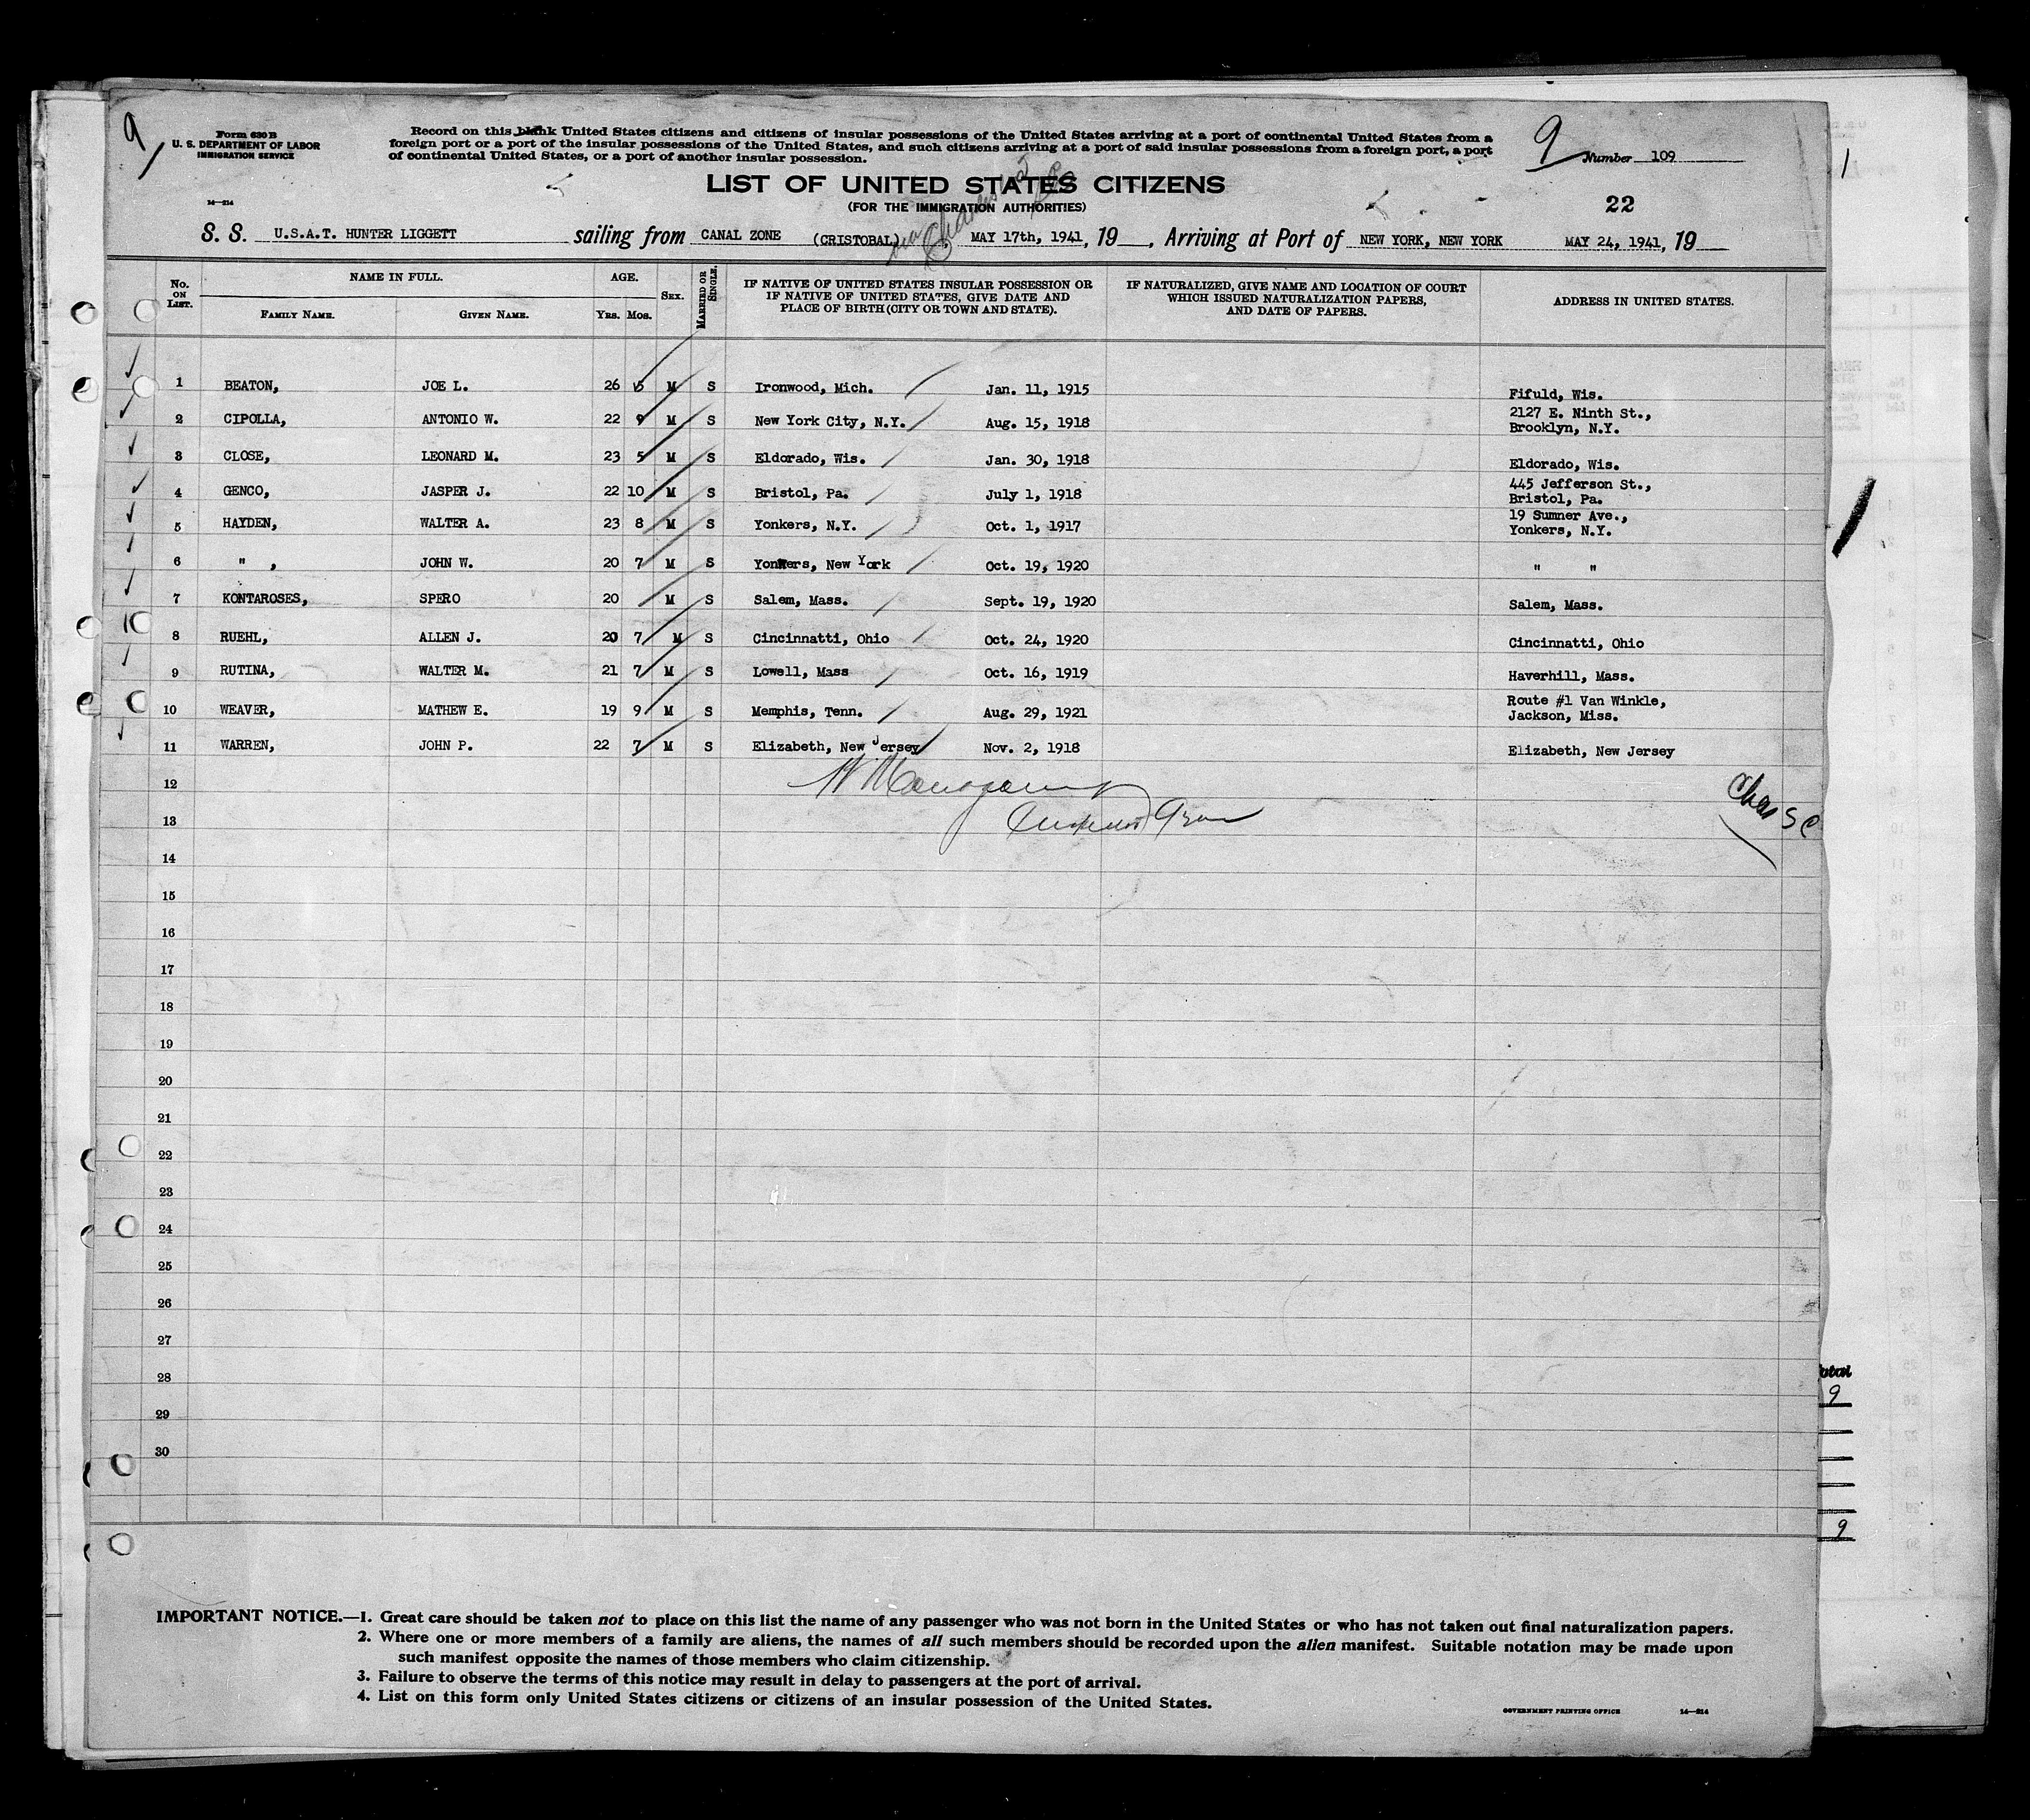 9
Form 630 B
U. S. DEPARTMENT OF LABOR
IMMIGRATION SERVICE
14—214
Record on this blank United States citizens and citizens of insular possessions of the United States arriving at a port of continental United States from a
foreign port or a port of the insular possessions of the United States, and such citizens arriving at a port of said insular possessions from a foreign port, a port
of continental United States, or a port of another insular possession.
9
Number 109
LIST OF UNITED STATES CITIZENS
(FOR THE IMMIGRATION AUTHORITIES)
22
S. S. U.S.A.T. HUNTER LIGGETT sailing from CANAL ZONE (CRISTOBAL) MAY 17th, 1941, 19 , Arriving at Port of NEW YORK, NEW YORK MAY 24, 1941, 19
via Charleston SC
No. ON LIST.
NAME IN FULL.
FAMILY NAME. GIVEN NAME.
AGE.
YRS. MOS.
SEX.
MARRIED OR SINGLE.
IF NATIVE OF UNITED STATES INSULAR POSSESSION OR
IF NATIVE OF UNITED STATES, GIVE DATE AND
PLACE OF BIRTH (CITY OR TOWN AND STATE).
IF NATURALIZED, GIVE NAME AND LOCATION OF COURT
WHICH ISSUED NATURALIZATION PAPERS,
AND DATE OF PAPERS.
ADDRESS IN UNITED STATES.
1 BEATON, JOE L. 26 5 M S Ironwood, Mich. Jan. 11, 1915 Fifuld, Wis.
2 CIPOLLA, ANTONIO W. 22 9 M S New York City, N.Y. Aug. 15, 1918 2127 E. Ninth St.,
Brooklyn, N.Y.
3 CLOSE, LEONARD M. 23 5 M S Eldorado, Wis. Jan. 30, 1918 Eldorado, Wis.
4 GENCO, JASPER J. 22 10 M S Bristol, Pa. July 1, 1918 445 Jefferson St.,
Bristol, Pa.
5 HAYDEN, WALTER A. 23 8 M S Yonkers, N.Y. Oct. 1, 1917 19 Sumner Ave.,
Yonkers, N.Y.
6 " , JOHN W. 20 7 M S Yonkers, New York Oct. 19, 1920 " "
7 KONTAROSES, SPERO 20 M S Salem, Mass. Sept. 19, 1920 Salem, Mass.
8 RUEHL, ALLEN J. 20 7 M S Cincinnatti, Ohio Oct. 24, 1920 Cincinnatti, Ohio
9 RUTINA, WALTER M. 21 7 M S Lowell, Mass Oct. 16, 1919 Haverhill, Mass.
10 WEAVER, MATHEW E. 19 9 M S Memphis, Tenn. Aug. 29, 1921 Route #1 Van Winkle,
Jackson, Miss.
11 WARREN, JOHN P. 22 7 M S Elizabeth, New Jersey Nov. 2, 1918 Elizabeth, New Jersey
12
Chas SC
13
14
15
16
17
18
19
20
21
22
23
24
25
26
27
28
29
30
9
9
IMPORTANT NOTICE.—1. Great care should be taken not to place on this list the name of any passenger who was not born in the United States or who has not taken out final naturalization papers.
2. Where one or more members of a family are aliens, the names of all such members should be recorded upon the alien manifest. Suitable notation may be made upon
such manifest opposite the names of those members who claim citizenship.
3. Failure to observe the terms of this notice may result in delay to passengers at the port of arrival.
4. List on this form only United States citizens or citizens of an insular possession of the United States.
GOVERNMENT PRINTING OFFICE 14—214